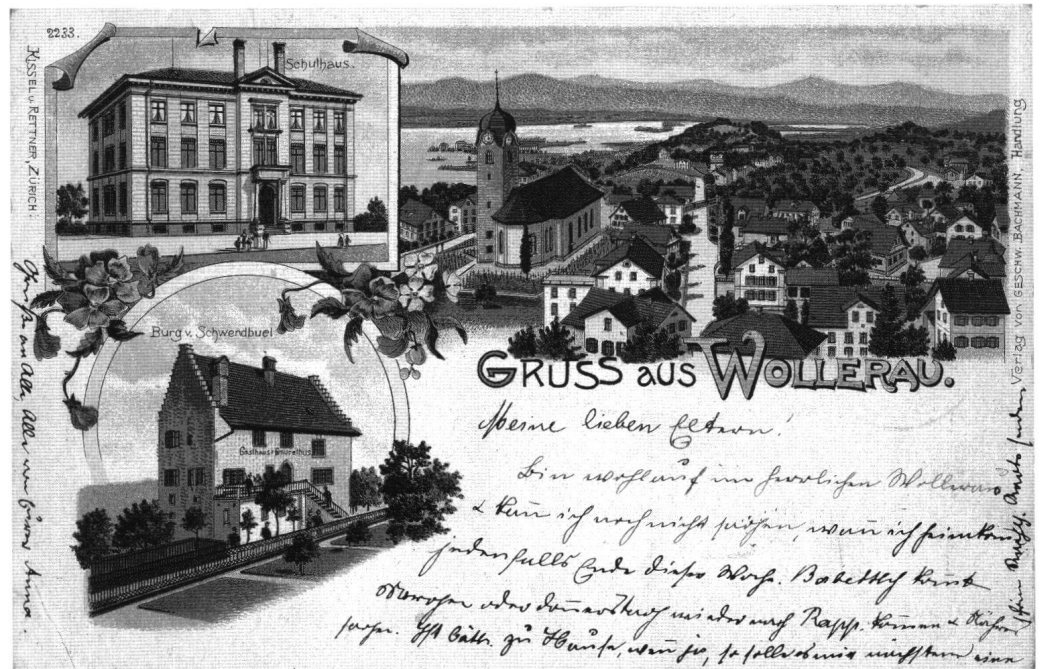 2233.
Schulhaus.
KISSEL u. RETTNER, ZÜRICH.
Burg v. Schwendbuel
Gasthaus
GRUSS aus WOLLERAU.
Verlag von GESCHW. BACHMANN, Handlung
Meine lieben Eltern!
Bin wohlauf im herrlichen Wollerau
& kann ich noch nicht sagen, wann ich heimkom
jedenfalls Ende dieser Woche. Babettch kommt
Morgen oder Donnerstag wieder nach Rapp. kommen &
sagen. Ist Babtt. zu Hause, wenn ja, so solle es mir nächstens eine
Grüße an Alle, Alle von Eurer Anna.